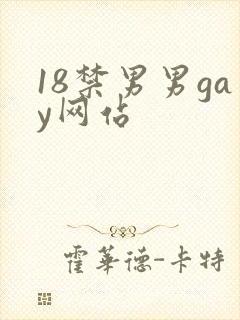 18禁男男ga
y网佔
霍华德-卡特